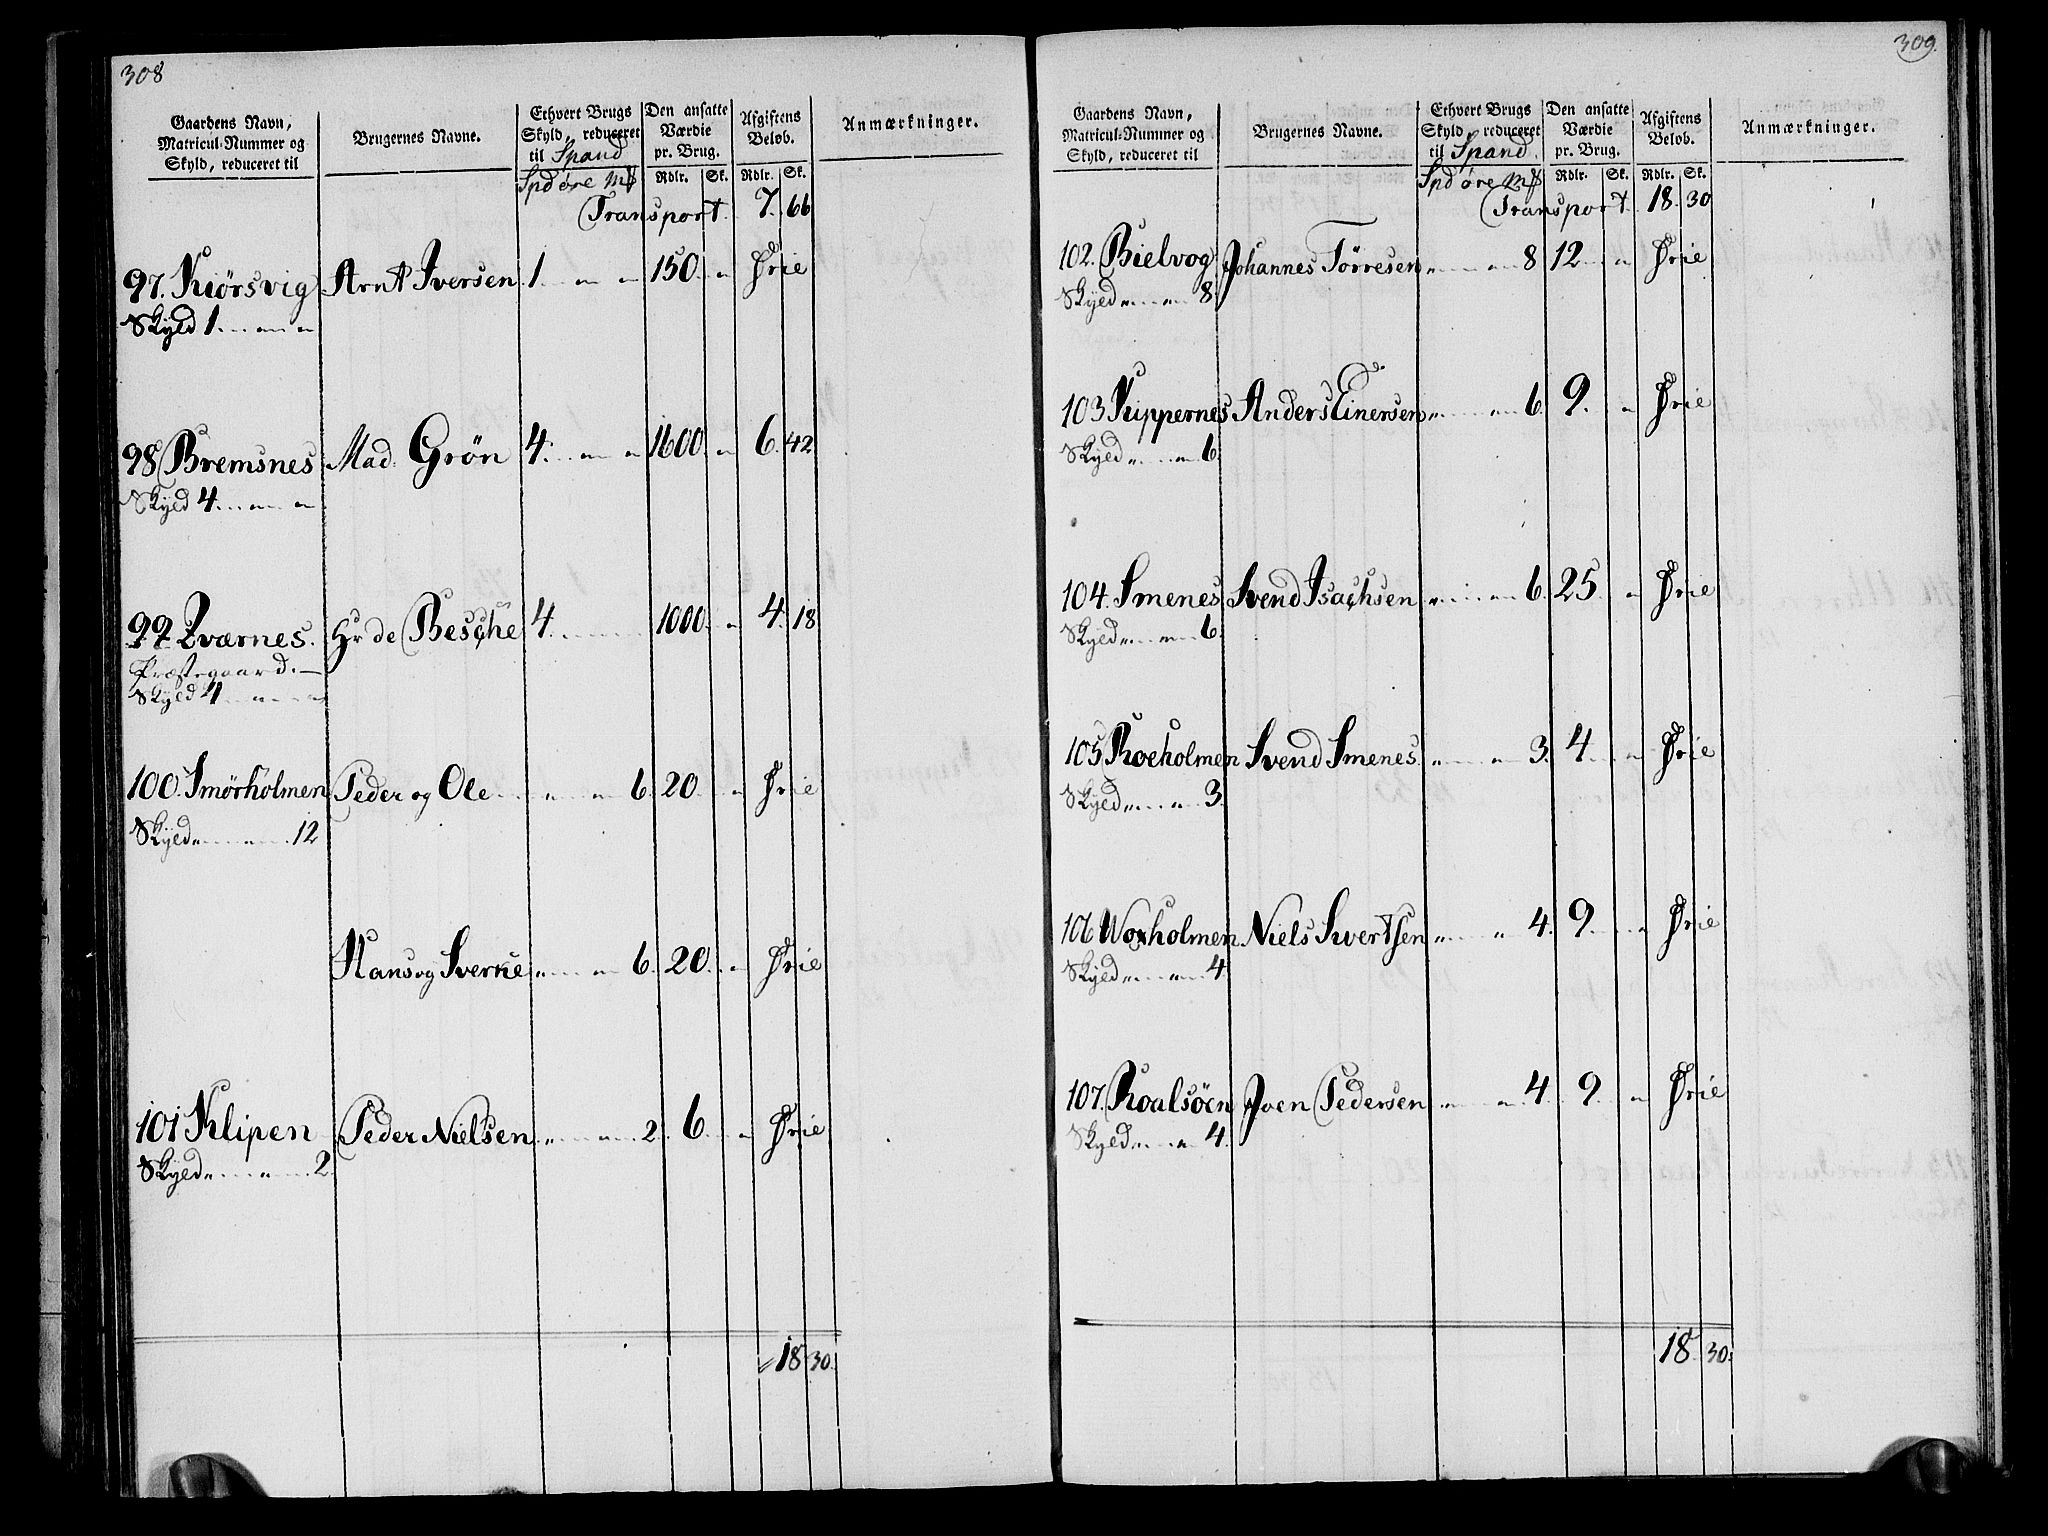 308
Gaardens Navn, Matricul-Nummer og Skyld, reduceret til
Brugernes Navne.
Ethvert Brugs Skyld, reduceret til Spand
Den ansatte Værdie pr. Brug.
Afgiftens Beløb.
Anmærkninger.
Spd øre Mk
Rdlr. Sk. Rdlr. Sk.
Transport. 7. 66
97. Kiørsvig Arnt Iversen 1 " " 150 " Frie
Skyld 1 " "
98 Bremsnes Mad. Grøn 4 " " 1600 " 6. 42
Skyld 4 " "
99 Qværnes. Hr de Besche 4 1000 " 4. 18
Præstegaard.
Skyld 4 " "
100. Smørholmen Peder og Ole " " 6. 20 " Frie
Skyld " " 12
Hans og Sverke " " 6. 20 " Frie
101 Klipen Peder Nielsen " " 2. 6 " Frie
Skyld " " 2.
18 30.
309.
Gaardens Navn, Matricul-Nummer og Skyld, reduceret til
Brugernes Navne.
Ethvert Brugs Skyld, reduceret til Spand.
Den ansatte Værdie pr. Brug.
Afgiftens Beløb.
Anmærkninger.
Spd øre Mk
Rdlr. Sk. Rdlr. Sk.
Transport. 18. 30
102. Bielvog Johannes Tørresen " " 8 12 " Frie
Skyld " " 8.
103 Kippernes Anders Einersen " " 6. 9. " Frie
Skyld " " 6.
104. Smenes Svend Isachsen " " 6. 25 " Frie
Skyld " " 6.
105 Roeholmen Svend Smenes. " " 3. 4 " Frie
Skyld " " 3.
106 Woxholmen Niels Swertsen " " 4. 9 " Frie
Skyld " " 4.
107. Roalsøen Iven Pedersen " " 4. 9. " Frie
Skyld " " 4.
18. 30.